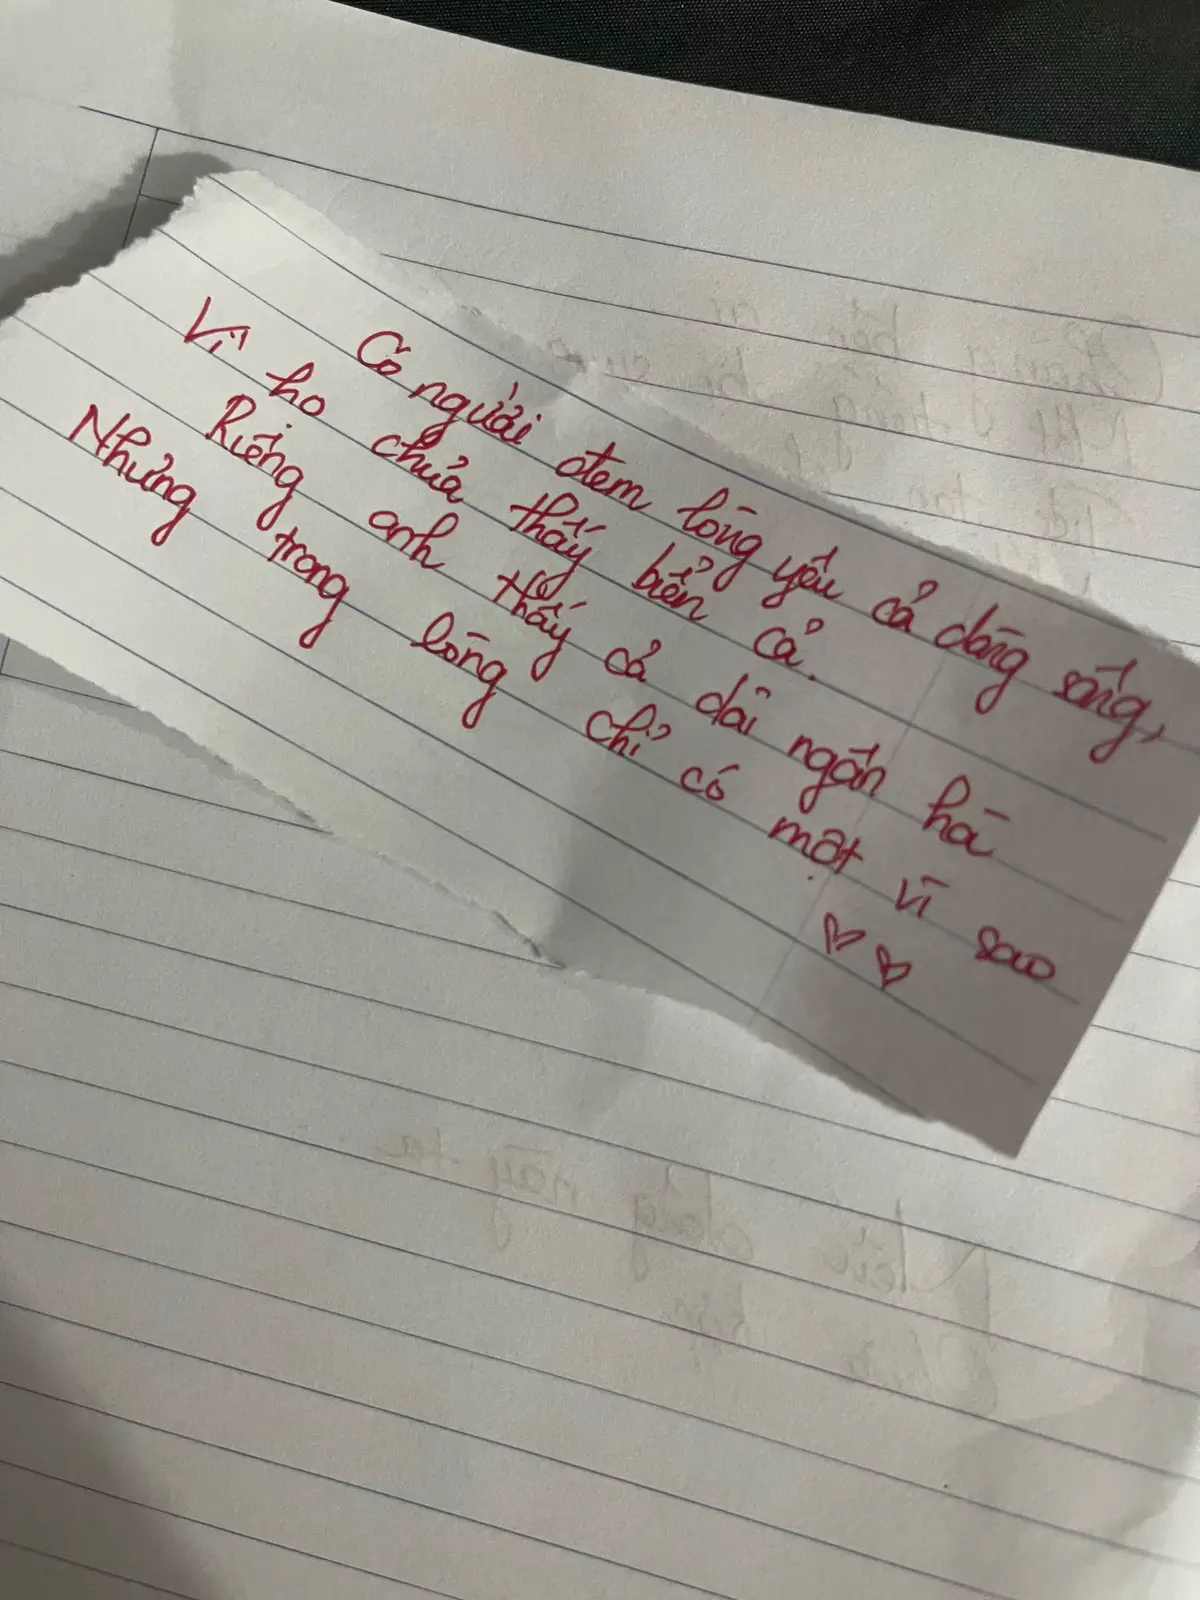 Có người đem lòng yêu cả dòng sông,
Vì họ chưa thấy biển cả.
Riêng anh thấy cả dải ngân hà
Nhưng trong lòng chỉ có một vì sao